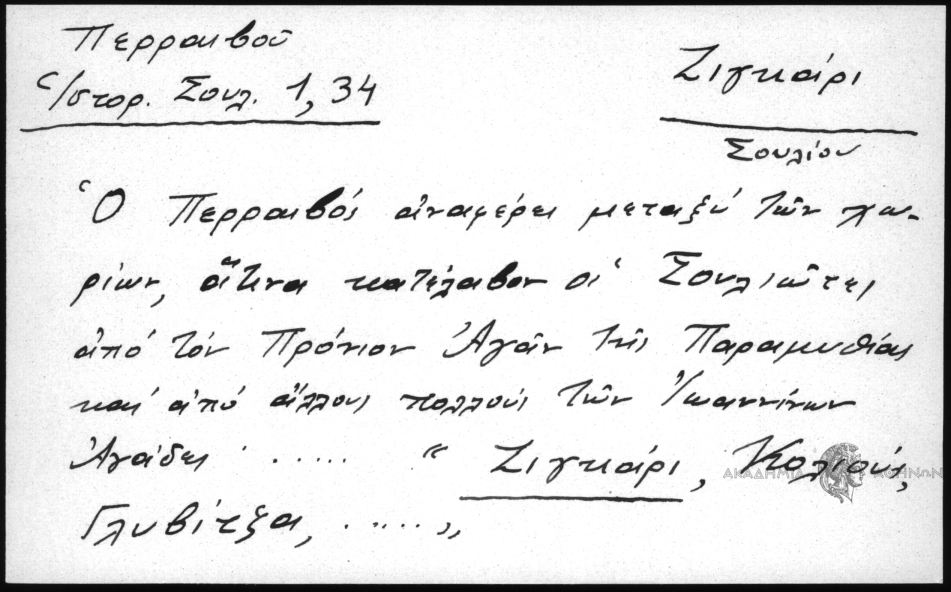 Περραιβοῦ
Ἱστορ. Σουλ. 1, 34
Ζιγκάρι
Σουλίου
Ὁ Περραιβός ἀναφέρει μεταξύ τῶν χω-
ρίων, ἅτινα κατέλαβον οἱ Σουλιῶτες
ἀπό τόν Πρόνιον Ἀγᾶν τῆς Παραμυθίας
καί ἀπό ἄλλους πολλούς τῶν Ἰωαννίνων
Ἀγάδες ..... " Ζιγκάρι, Κολιούς,
ΑΚΑΔΗΜΙΑ ΑΘΗΝΩΝ
Γλυβίτζα, ..... „